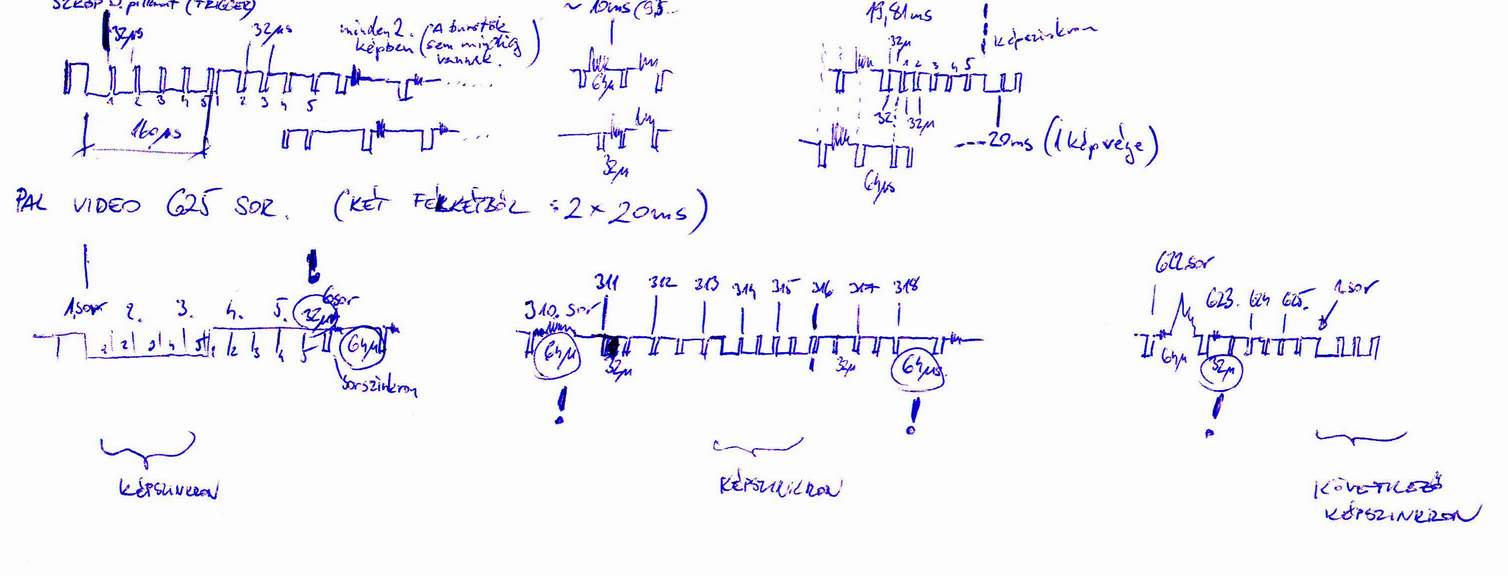 32µs
32µs
minden 2. (A burstök
képben sem mindig
vannak.)
1 2 3 4 5 1 2 3 4 5
160µs
~10ms (9,5
64µ
32µ
19,81ms
képszinkron
32µ
1 2 3 4 5
32 32µ
64µs
---20ms (1 kép vége)
PAL VIDEO 625 SOR. (KÉT FÉLKÉPBŐL : 2 × 20ms)
1.sor 2. 3. 4. 5. 6.sor
32µs
64µ
sorszinkron
KÉPSZINKRON
310. sor 311 312 313 314 315 316 317 318
64µ 32µ 32µ 64µs
! !
KÉPSZINKRON
622.sor 623. 624 625. 1.sor
64µ 32µ
!
KÖVETKEZŐ
KÉPSZINKRON